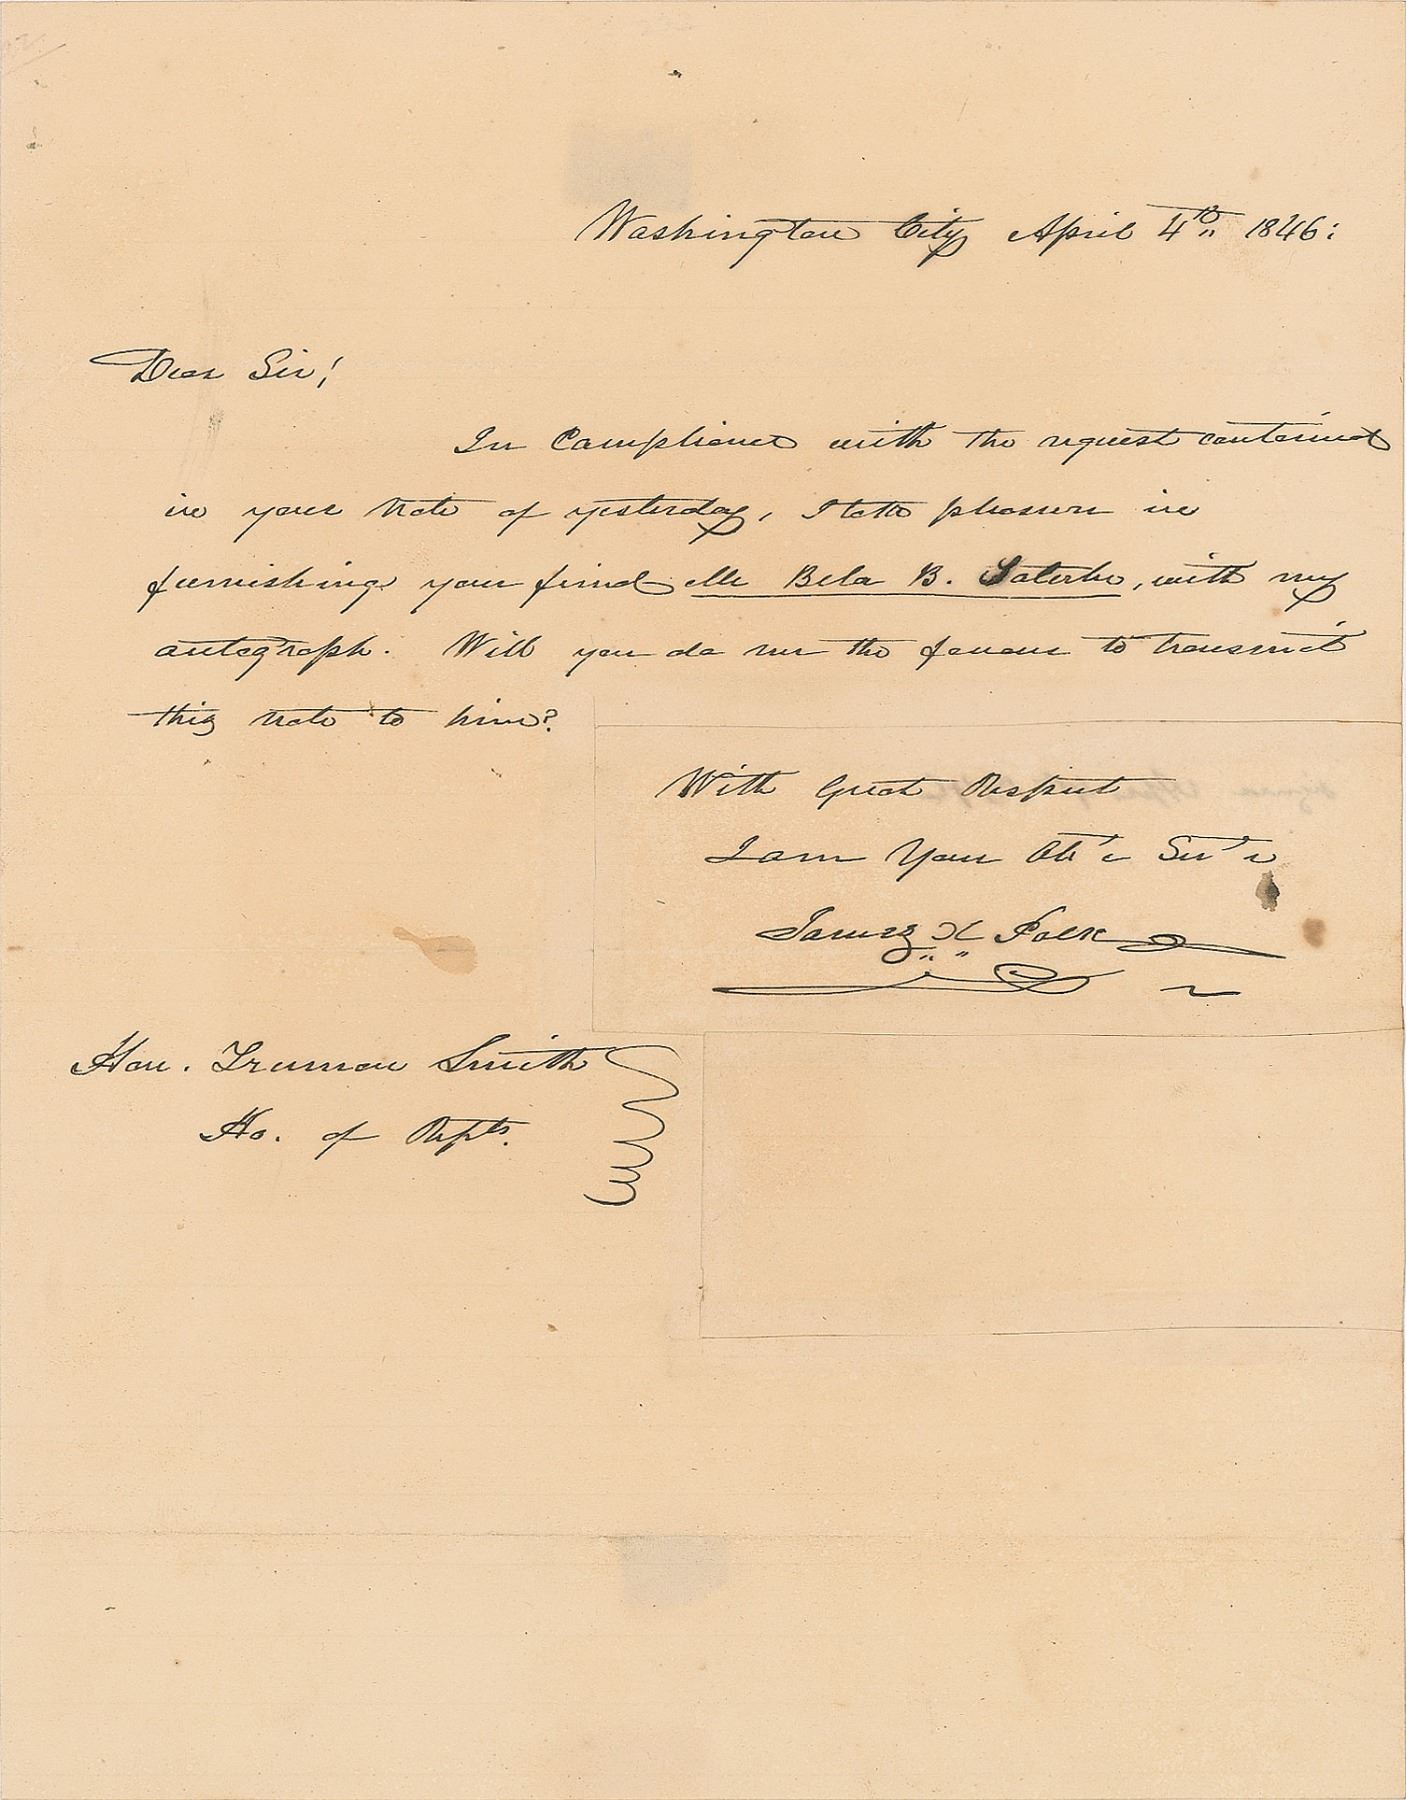 Washington City April 4th 1846:
Dear Sir!
In Compliance with the request contained
in your note of yesterday, I take pleasure in
furnishing your friend Mr Bela B. with my
autograph. Will you do me the favour to transmit
this note to him?
With Great Respect
I am Your Ob't Ser't
James K Polk
Hon. Truman Smith
Ho. of Repts.